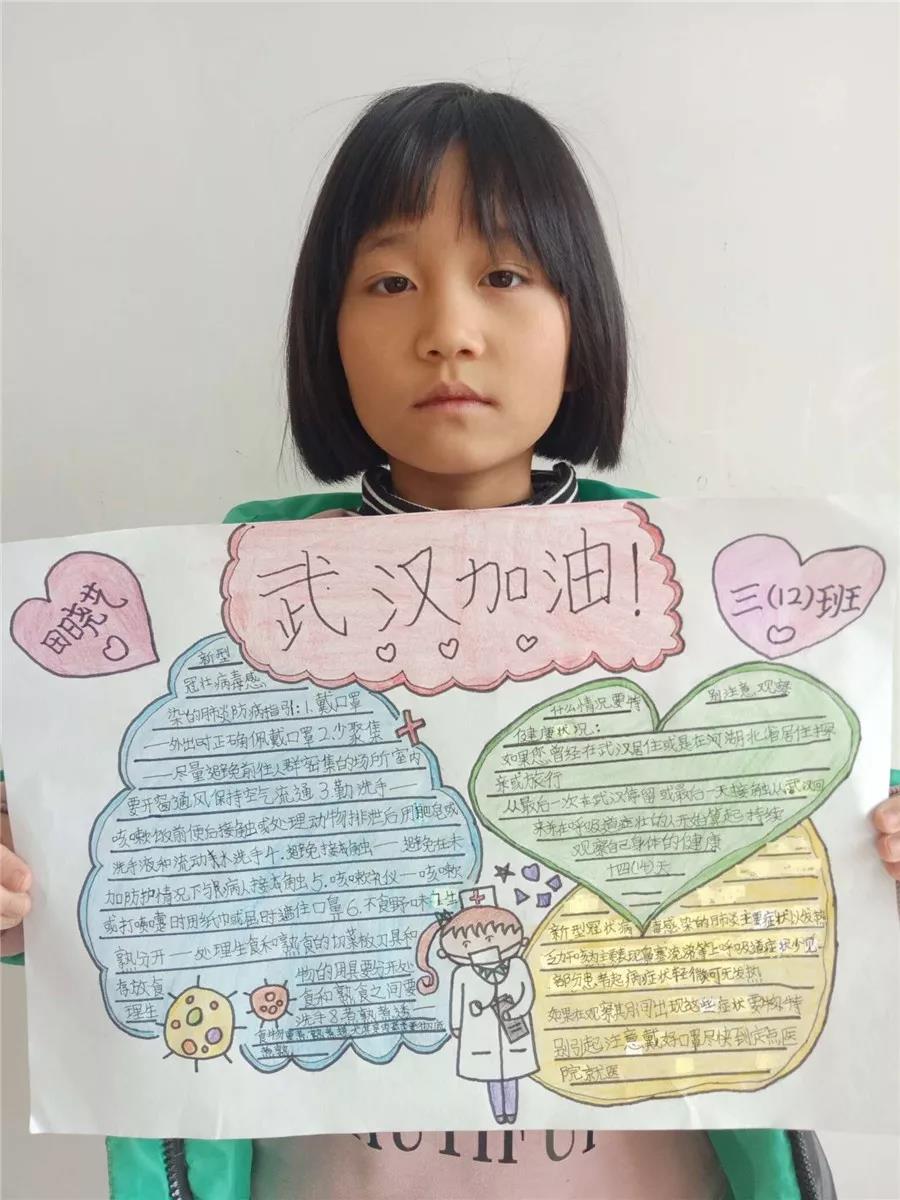 武汉加油!
田晓艺
三(12)班
新型
冠壮病毒感
染的肺炎防病指引:1.戴口罩
一外出时正确佩戴口罩2.少聚集
一尽量避免前往人群密集的场所室内
要开窗通风,保持空气流通3.勤洗手一
咳嗽、饭前便后接触或处理动物排泄后用肥皂或
洗手液和流动水洗手4.避免接触 — 避免在未
加防护情况下与病人接触5.咳嗽礼仪一咳嗽
或打喷嚏时用纸巾或屈肘遮住口鼻6.不食野味7.生
熟分开一处理生食和熟食的切菜板刀具和
存放食物的用具要分开处
理生食和熟食之间要
洗手8.煮熟煮透一
什么情况要特别注意观察
健康状况:
如果您曾经在武汉居住或是在河湖北省居住探
亲或旅行
从最后一次在武汉停留或最后一天接触从武汉回
来并在呼吸道症壮的人开始算起持续
观察自己身体的健康
十四(14)天
新型冠状病毒感染的肺炎主要症状以发热
乏力干咳为主要表现鼻塞流涕等上呼吸道症状少见
部分患者起病症状轻微可无发热
如果在观察其月间出现这些症状要特
别引起注意戴好口罩尽快到定点医
院就医